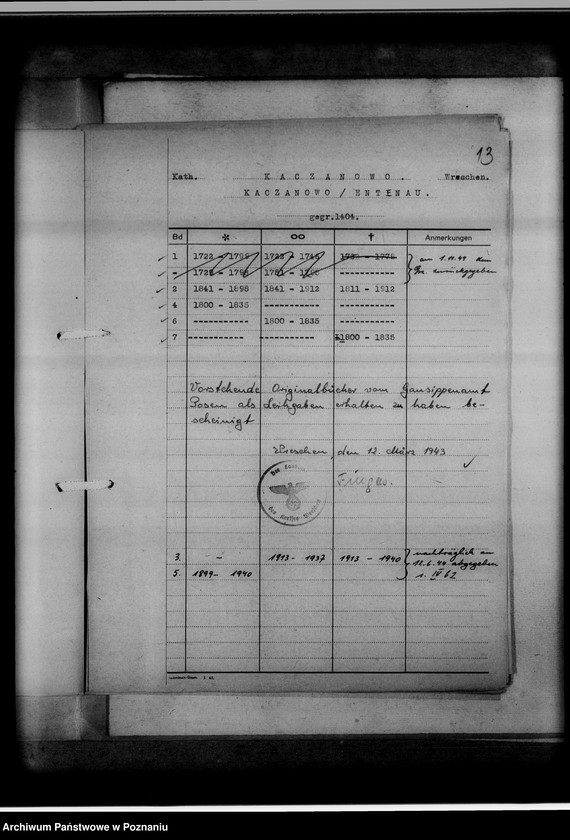 13
Kath. KACZANOWO. Wreschen.
KACZANOWO / ENTENAU.
gegr.1404.
Bd * ∞ † Anmerkungen
1 1722 - 1799 1722 - 1746 am 1.11.44 zurückgegeben
- ----------
2 1841 - 1898 1841 - 1912 1811 - 1912
4 1800 - 1835 ---------- ----------
6 ---------- 1800 - 1835 ----------
7 ---------- ---------- 1800 - 1835
Vorstehende Originalbücher vom Gausippenamt
Posen als Leihgaben erhalten zu haben be-
scheinigt
Wreschen, den 12. März 1943
Der
des Kreises Wreschen
3. - 1913 - 1937 1913 - 1940 nachträglich am
12.6.44 abgegeben
5. 1899 - 1940
Archiwum Państwowe w Poznaniu